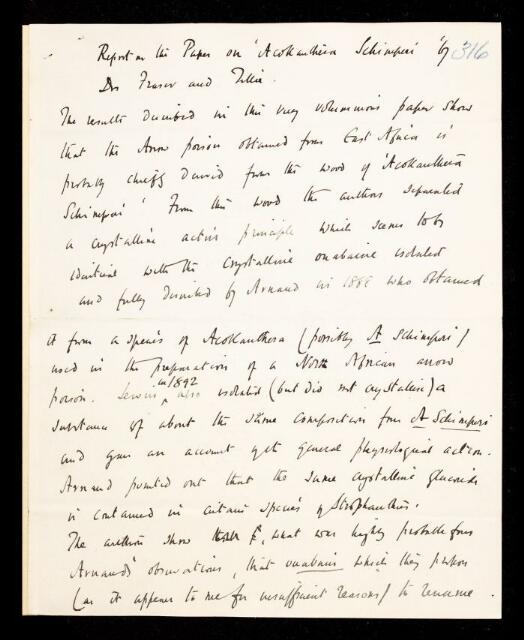 Report on the Paper on 'Acokanthera Schimperi' by 316
Drs Fraser and Tillie.
The results described in this very voluminous paper show
that the Arrow poison obtained from East Africa is
probably chiefly derived from the wood of 'Acokanthera
Schimperi' From this wood the authors separated
a crystalline active principle which seems to be
identical with the crystalline ouabaine isolated
and fully described by Arnaud in 1888 who obtained
it from a species of Acokanthera (possibly A Schimperi)
used in the preparation of a North African arrow
poison. Lewin in 1892 also isolated (but did not crystallise) a
substance of about the same composition from A Schimperi
and gave an account of its general physiological action.
Arnaud pointed out that the same crystalline glucoside
is contained in certain species of Strophanthus.
The authors show what was highly probable from
Arnaud's observations, that ouabain which they propose
(as it appears to me for insufficient reasons) to rename